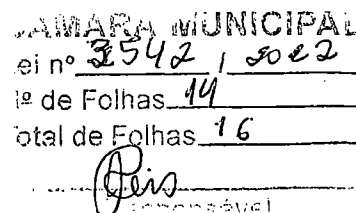 CÂMARA MUNICIPAL
ei nº 3542 / 2022
lº de Folhas 14
otal de Folhas 16
Reis
responsável